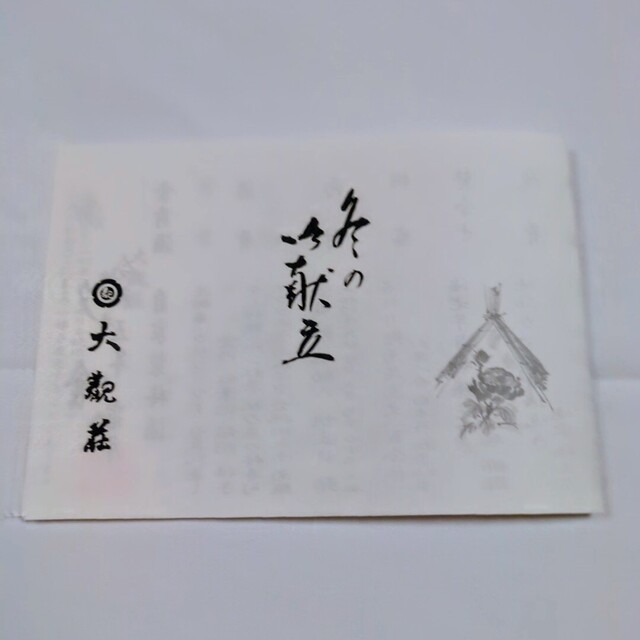 冬の
御献立
大観荘